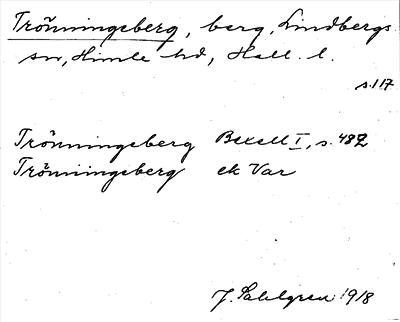 Trönningeberg, berg, Lindbergs
sn, Himle hd, Hall. l.
s. 117
Trönningeberg Bexell I, s. 482
Trönningeberg ek Var
J. Sahlgren 1918